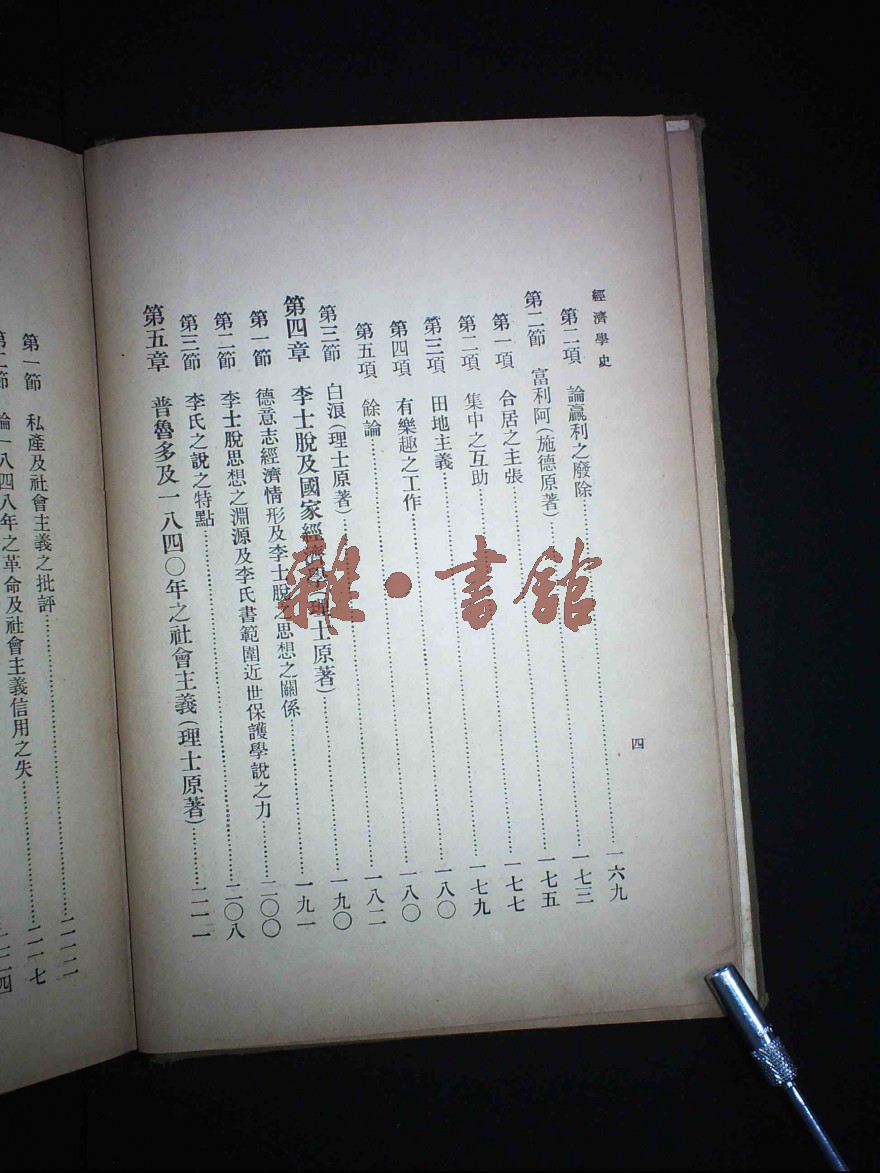 經濟學史
四
第二項 論贏利之廢除……一六九
第二節 富利阿(施德原著)……一七三
第一項 合居之主張……一七五
第二項 集中之互助……一七七
第三項 田地主義……一七九
第四項 有樂趣之工作……一八〇
第五項 餘論……一八〇
第三節 白浪(理士原著)……一八二
第四章 李士脫及國家經濟學(理士原著)……一九〇
第一節 德意志經濟情形及李士脫之思想之關係……一九一
第二節 李士脫思想之淵源及李氏書範圍近世保護學說之力……二〇〇
第三節 李氏之說之特點……二〇八
第五章 普魯多及一八四〇年之社會主義(理士原著)……二一一
第一節 私產及社會主義之批評……二一二
第二節 論一八四八年之革命及社會主義信用之失……二一七
雜·書館